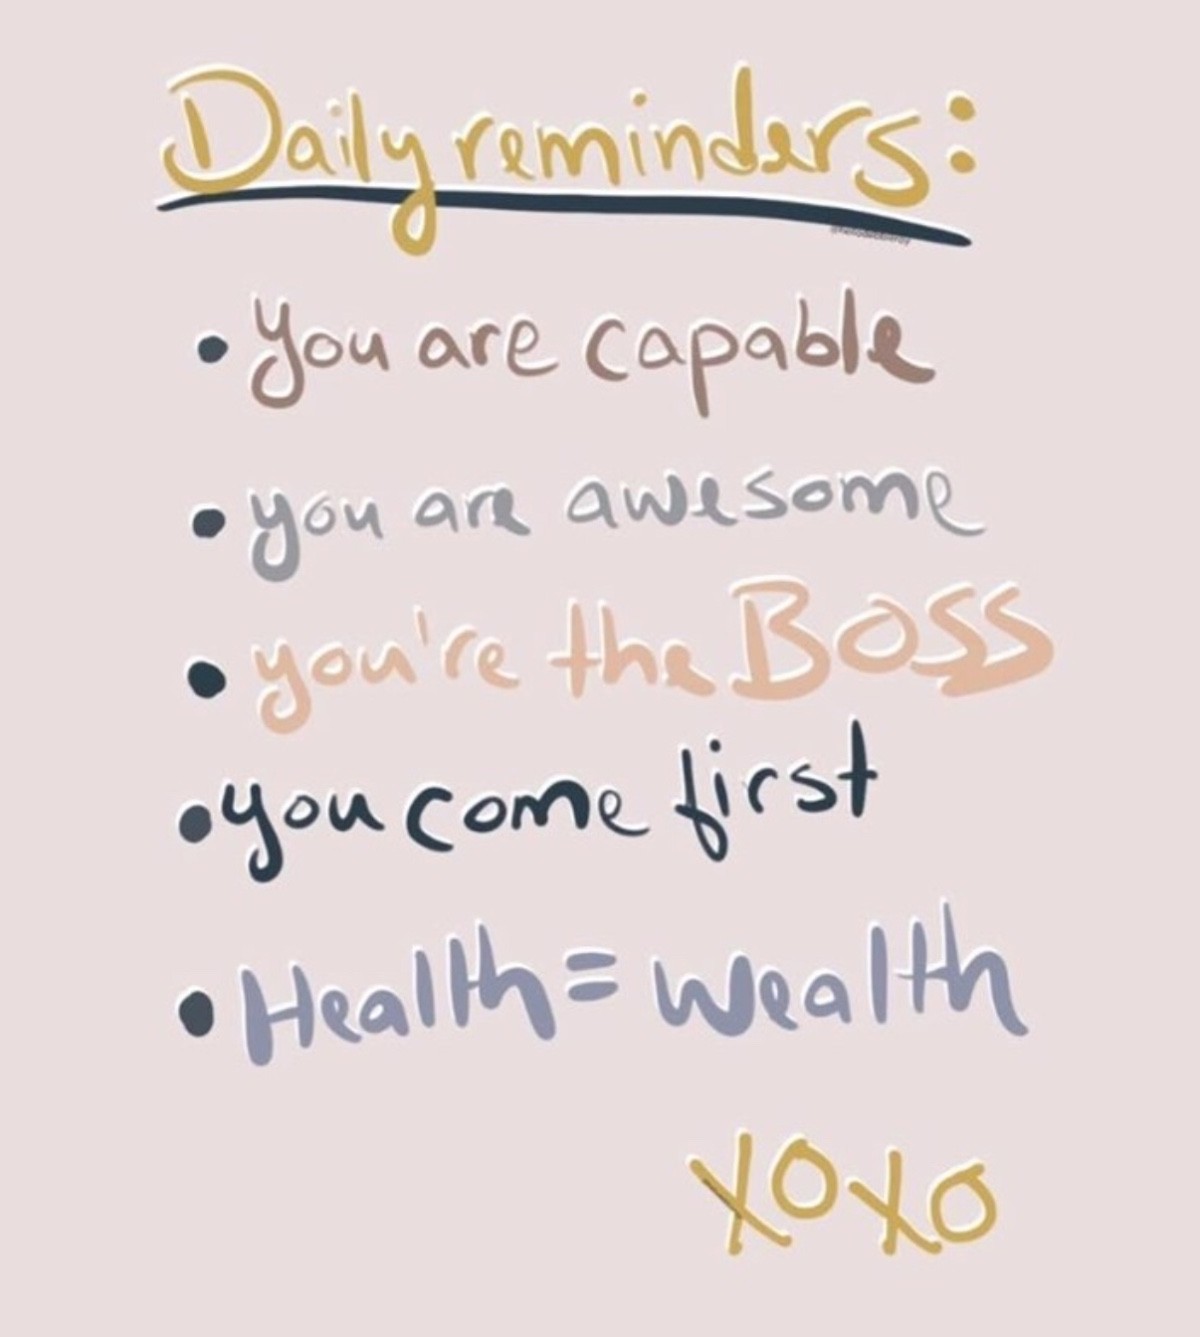 Daily reminders:
• you are capable
• you are awesome
• you're the BOSS
• you come first
• Health = Wealth
XOXO